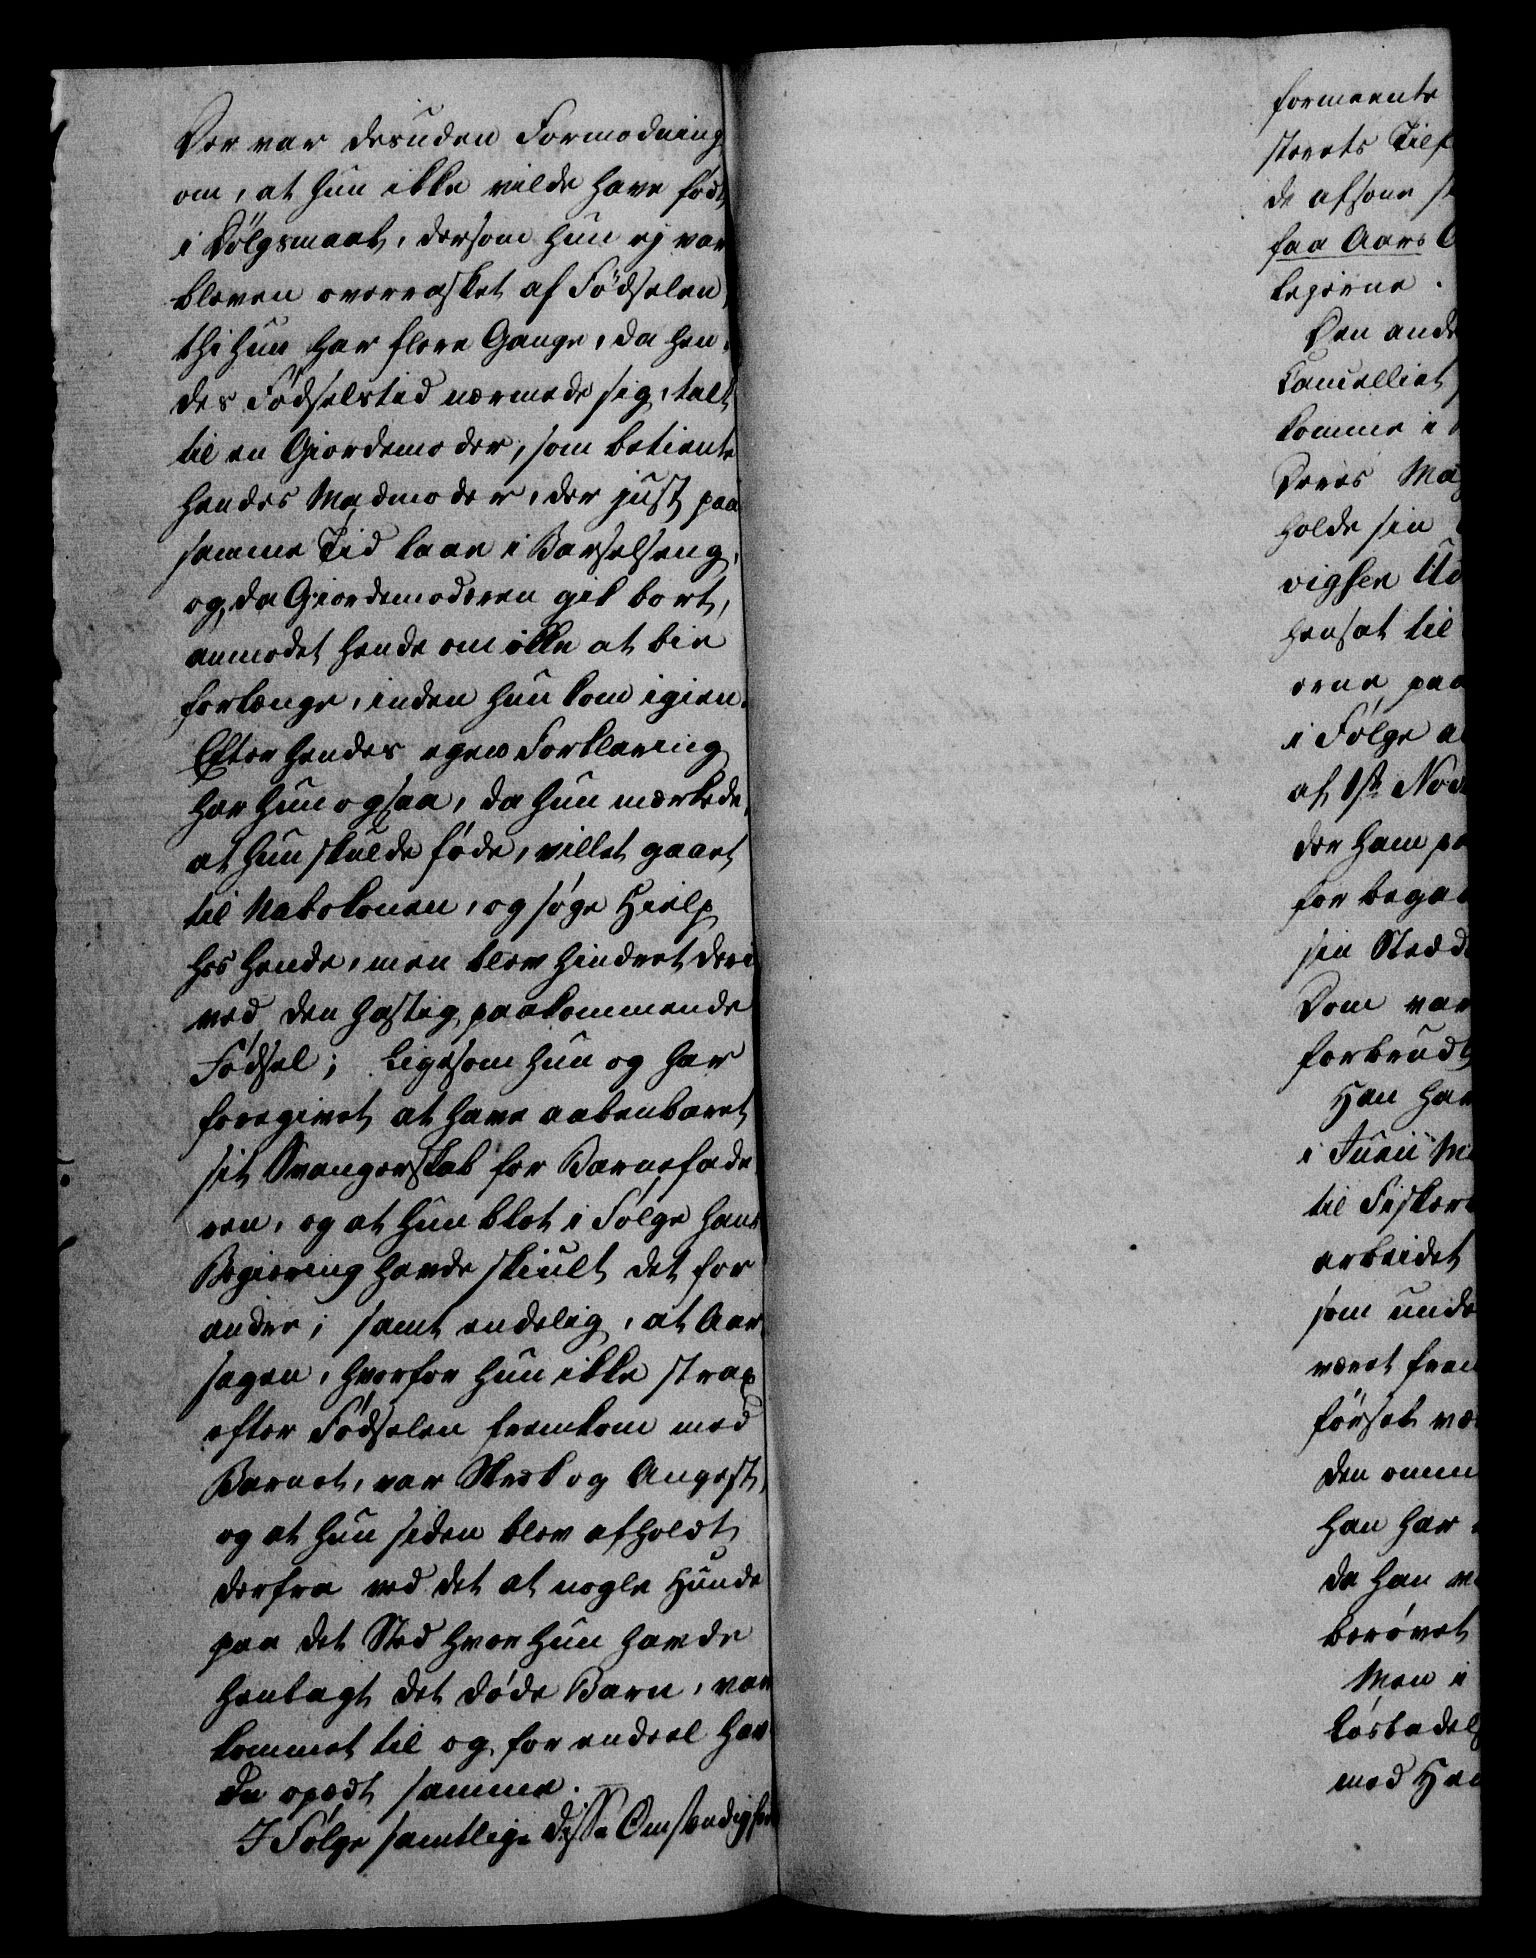 Der var desuden Formodning
om, at hun ikke vilde have født
i Dølgsmaal, dersom hun ej var
bleven overrasket af Fødselen,
thi hun har flere Gange, da hen-
des Fødselstid nærmede sig, talt
til en Giordemoder, som betiente
hendes Madmoder, der just paa
samme Tid laae i Barselseng,
og da Giordemoderen gik bort,
anmodet hende om ikke at bie
forlænge, inden hun kom igien.
Efter hendes egen Forklaring
har hun ogsaa, da hun mærkede,
at hun skulde føde, villet gaaet
til Nabokonen, og søge Hielp
hos hende, men blev hindret deri
ved den hastig paakommende
Fødsel; ligesom hun og har
foregivet at have aabenbaret
sit Svangerskab for Barnefade-
ren, og at hun blot i Følge hans
Begiering havde skiult det for
andre; samt endelig, at Aar-
sagen, hvorfor hun ikke strax
efter Fødselen fremkom med
Barnet, var Skræk og Angest,
og at hun siden blev afholdt
derfra ved det at nogle Hunde
paa det Sted hvor hun havde
henlagt det døde Barn, var
kommet til og for endeel hav-
de opædt samme.
I Følge samtlige disse Omstændighe
formeente
sterets Tilf
de afsone s
faa Aars
begierne.
Den ande
Cancelliet
komme i
Deres Ma
holde sin
vigsen Ud
hensat til
erne paa
i Følge a
af 1ste Nov
der ham pa
for begaa
sin Sted
Dom var
forbrudt
Han har
i Junii M
til Fisker
arbeidet
som unde
været frem
førsel væ
den omm
han har
da han v
berøvet
Men i
kosbadel
med Hen